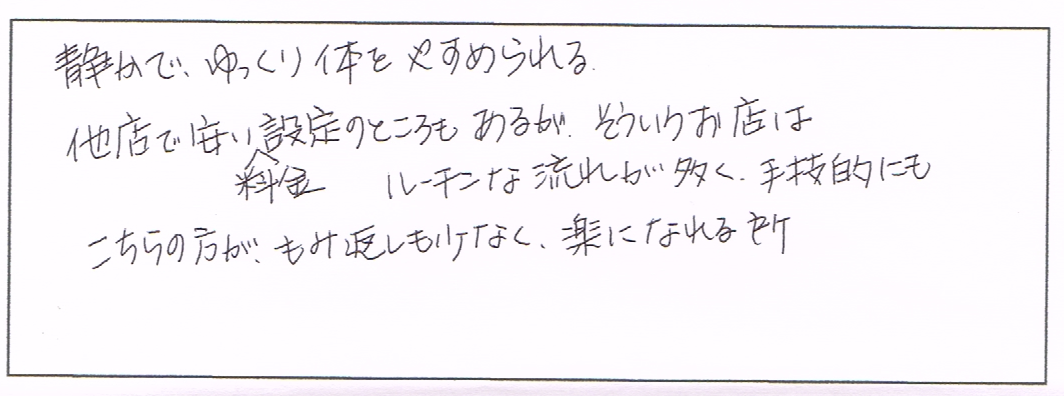 静かで、ゆっくり体をやすめられる。
他店で安い料金設定のところもあるが、そういうお店は
ルーチンな流れが多く、手技的にも
こちらの方が、もみ返しも少なく、楽になれる所